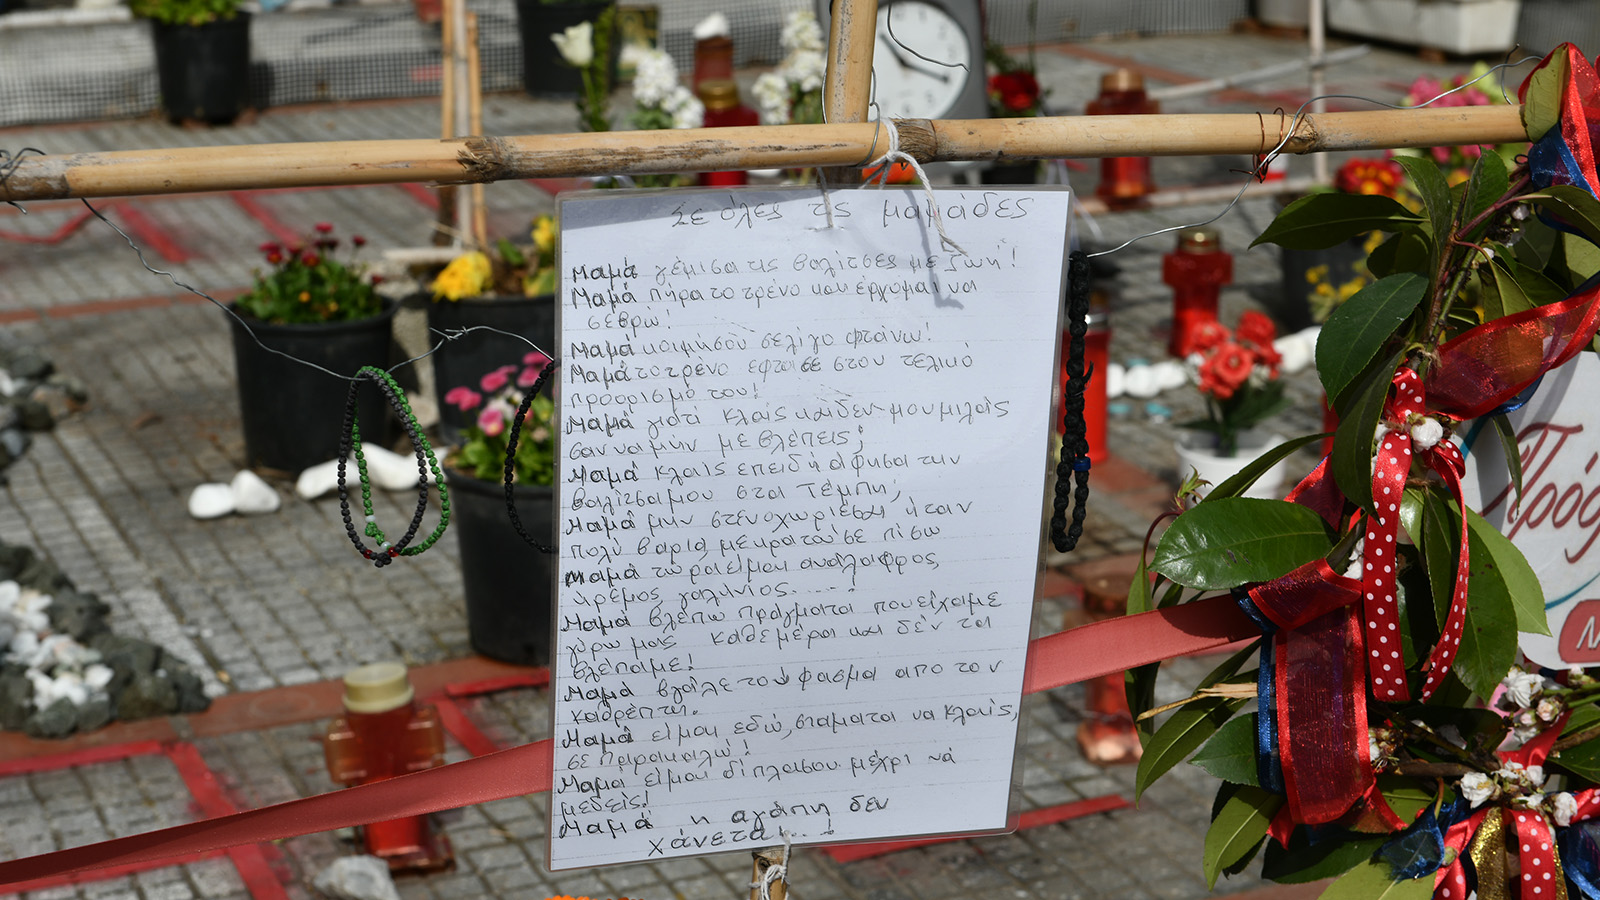 Σε όλες τις μαμάδες
Μαμά γέμισα τις βαλίτσες με ζωή!
Μαμά πήρα το τρένο και έρχομαι να
σε βρώ!
Μαμά κοιμήσου σε λίγο φτάνω!
Μαμά το τρένο έφτασε στον τελικό
προορισμό του!
Μαμά γιατί κλαίς και δεν μου μιλάς
σαν να μην με βλέπεις;
Μαμά κλαίς επειδή άφησα την
βαλίτσα μου στα Τέμπη;
Μαμά μην στενοχωριέσαι ήταν
πολύ βαριά, με κρατούσε πίσω
Μαμά τώρα είμαι ανάλαφρος,
ήρεμος γαλήνιος.....
Μαμά βλέπω πράγματα που είχαμε
γύρω μας καθεμέρα και δεν τα
βλέπαμε!
Μαμά βγάλε το ύφασμα από τον
καθρέπτη.
Μαμά είμαι εδώ, σταμάτα να κλαίς,
σε παρακαλώ!
Μαμά είμαι δίπλα σου μέχρι νά
Μαμά η αγάπη δεν
χάνεται...
Πρόσ